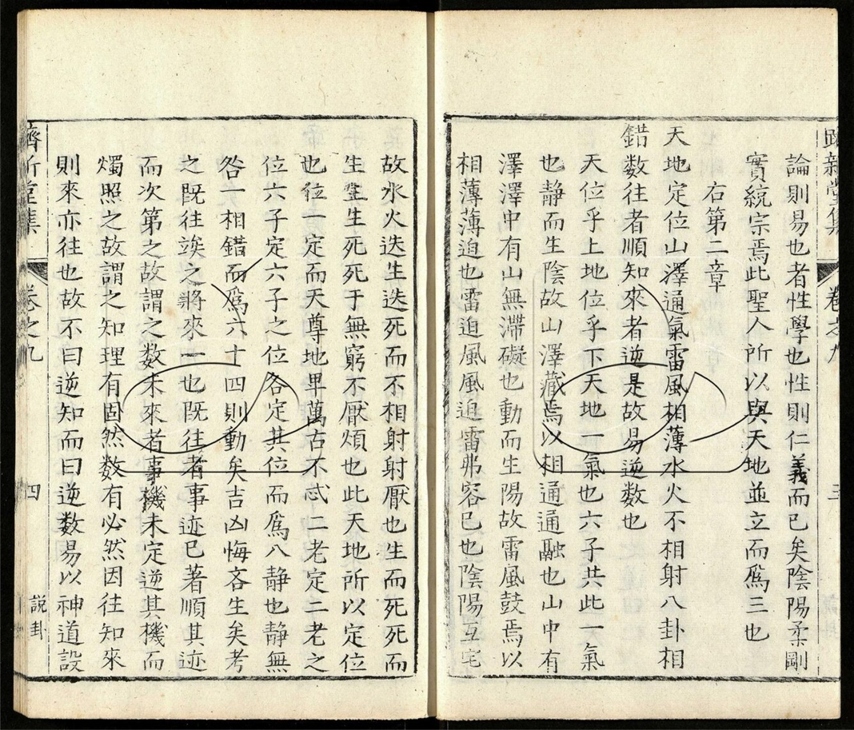 論則易也者性學也性則仁義而已矣陰陽柔剛
實統宗焉此聖人所以與天地並立而爲三也
右第二章
天地定位山澤通氣雷風相薄水火不相射八卦相
錯數往者順知來者逆是故易逆數也
天位乎上地位乎下天地一氣也六子共此一氣
也靜而生陰故山澤藏焉以相通通融也山中有
澤澤中有山無滯礙也動而生陽故雷風鼓焉以
相薄薄迫也雷迫風風迫雷弗容已也陰陽互宅
故水火迭生迭死而不相射射厭也生而死死而
生生生死死于無窮不厭煩也此天地所以定位
也位一定而天尊地卑萬古不忒二老定二老之
位六子定六子之位各定其位而爲八靜也靜無
咎一相錯而爲六十四則動矣吉凶悔吝生矣考
之既往竢之將來一也既往者事迹已著順其迹
而次第之故謂之數未來者事機未定逆其機而
燭照之故謂之知理有固然數有必然因往知來
則來亦往也故不曰逆知而曰逆數易以神道設
堂集 卷之九 四 說卦